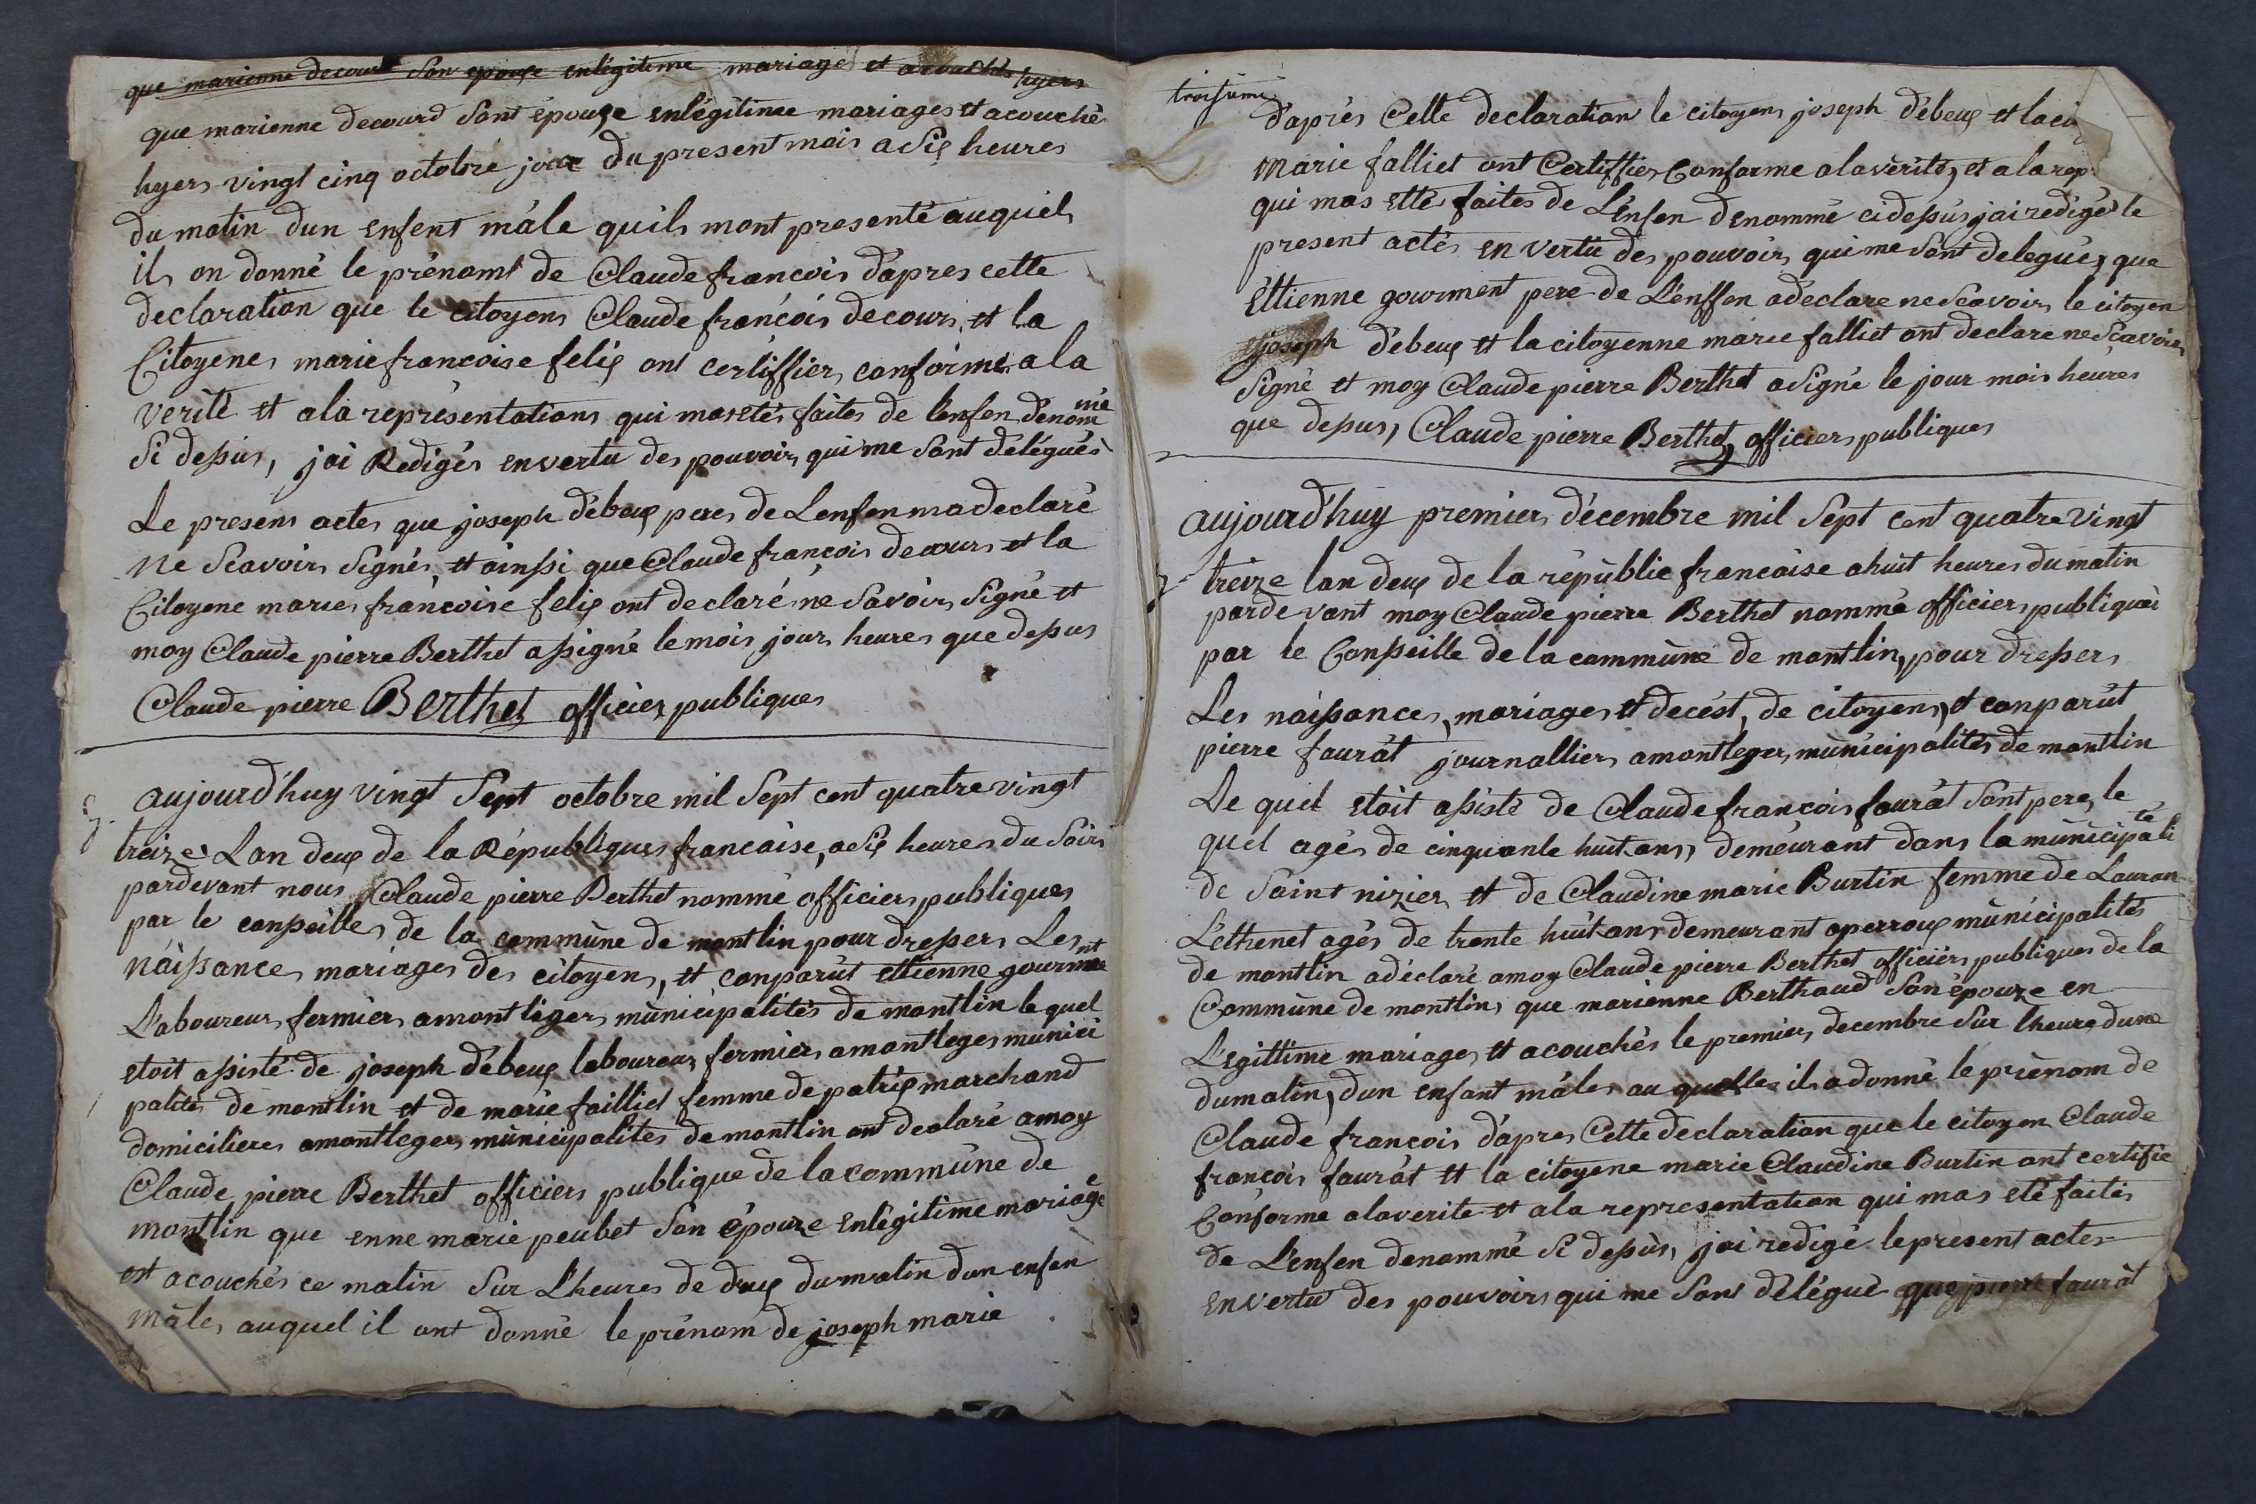 que marienne decourd Son epouse enlégiteme mariage et acouchés hyers
que marienne decourd Sont épouze enlégitinee mariages et acouché
hyers vingt cinq octobre jour du present mois a Six heures
du matin dun enfent mâle quils mont presenté auquels
ils on donné le prénoms de Claude francois d'apres cette
declaration que le citoyens Claude francois decours, et la
Citoyenes marie francoise felix ont certiffier conforme a la
verité et ala représentations qui mas etés faites de lenfen dénommé
Si dessus, jai Redigés en vertu des pouvoirs qui me Sont délégués
Le presens actes que joseph débeux peres de Lenfen ma declaré
Ne Scavoirs Signés, et ainssi que Claude francois decours et la
Citoyene maries francoise felix ont declaré ne Savoirs Signé et
moy Claude pierre Berthet assigné le mois jours heures que dessus
Claude pierre Berthet officiers publiques
aujourd'huy vingt Sept octobre mil Sept cent quatre vingt
treize Lan deux de la Républiques francaise, a Six heures du Soirs
pardevant nous Claude pierre Berthet nommé officiers publiques
par le consseilles de la commune de montlin pour dressers Les
náissances mariages des citoyens, et conparut ettienne gourment
L'aboureurs fermiers amontlegers municipalités de montlin le quel
etoit assisté de joseph débeux laboureurs fermiers amontleges munici
palités de montlin et de marie falliet femme de patrix marchand
domicilieres amontlegers municipalités de montlin ont declaré amoy
Claude pierre Berthet officiers publique de la commune de
montlin que enne marie peubet Són épouze enlégitime mariage
est acouchés ce matin Sur L'heures de deux dumatin dun enfen
mâles auquel il ont donné le prénom de joseph marie
troisieme
d'aprés Cette declaration le citoyens joseph débeux et la ci
marie falliet ont Certiffier Conforme alavérité, et a la rep
qui mas ettés faites de L'énfen denommé cidessus jai redigés le
present actés en vertu des pouvoirs qui me Sont delegués, que
Ettienne gourment pere de L'enffen a declare ne Scavoirs le citoyen
joseph débeux et la citoyenne marie falliet ont declare ne Scavoirs
Signé et moy Claude pierre Berthet a Signé le jour mois heures
que dessus, Claude pierre Berthet, officiers publiques
aujourd'huy premiers décembre mil Sept cent quatre vingt
treize lan deux de la républie francaise ahuit heures du matin
parde vant moy Claude pierre Berthet nommé officiers publiques
par le Consseille de la commune de montlin, pour dressers
Les náissances, mariages et decést, de citoyens, et conparút
pierre faurát journalliers amontlegers, municipalités de montlin
Le quel etoit assisté de Claude francois faurát Sont pere, le
quel agés de cinquante huit ans, demeurant dans la municipalité
de Saint nizier et de Claudine marie Burtin femme de Lauran
L'éthenet agés de trente huit ans demeurant aperroux municipalités
de montlin adéclaré amoy Claude pierre Berthet officiers publiques de la
Commune de montlin, que marienne Berthaud Són épouze en
L'egittime mariages et acouchés le premiers decembre Sur lheure dune
dumatin, dun enfant máles au quelles ils a donné le prénom de
Claude francois d'apres Cette declaration que le citoyen Claude
francois faurát et la citoyene marie Claudine Burtin ont certifie
Conforme alaverite et ala representation qui mas eté faités
de L'enfen denommé Si dessus, jai redigé le present actes
en vertu des pouvoirs qui me Sont délégué que pierre faurát